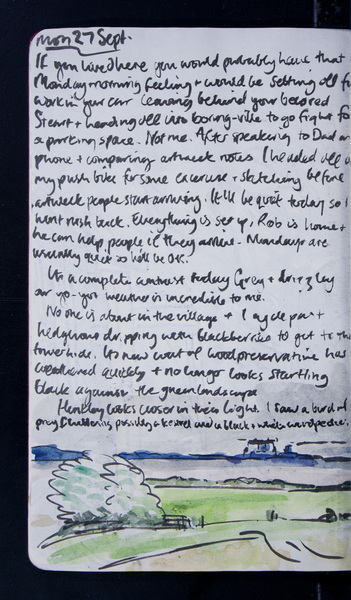 Mon 27 Sept.
If you lived here you would probably have that
Monday morning feeling + would be setting off to
work in your car leaving behind your beloved
Stewart + heading off into boring-ville to go fight for
a parking space. Not me. After speaking to Dad on
phone + comparing artweek notes I headed off on
my push bike for some exercise + sketching before
artweek people start arriving. It'll be quiet today so I
wont rush back. Everything is set up, Rob is home +
he can help people if they arrive. Mondays are
usually quiet so I'll be OK.
Its a complete contrast today Grey + drizzley
our yo-yo weather is incredible to me.
No one is about in the village + I cycle past
hedgerows dripping with blackberries to get to the
tower hide. Its new coat of wood preservative has
weathered quickly + no longer looks startling
black against the green landscape
looks closer in this light. I saw a bird of
prey possibly a kestrel and a black + white